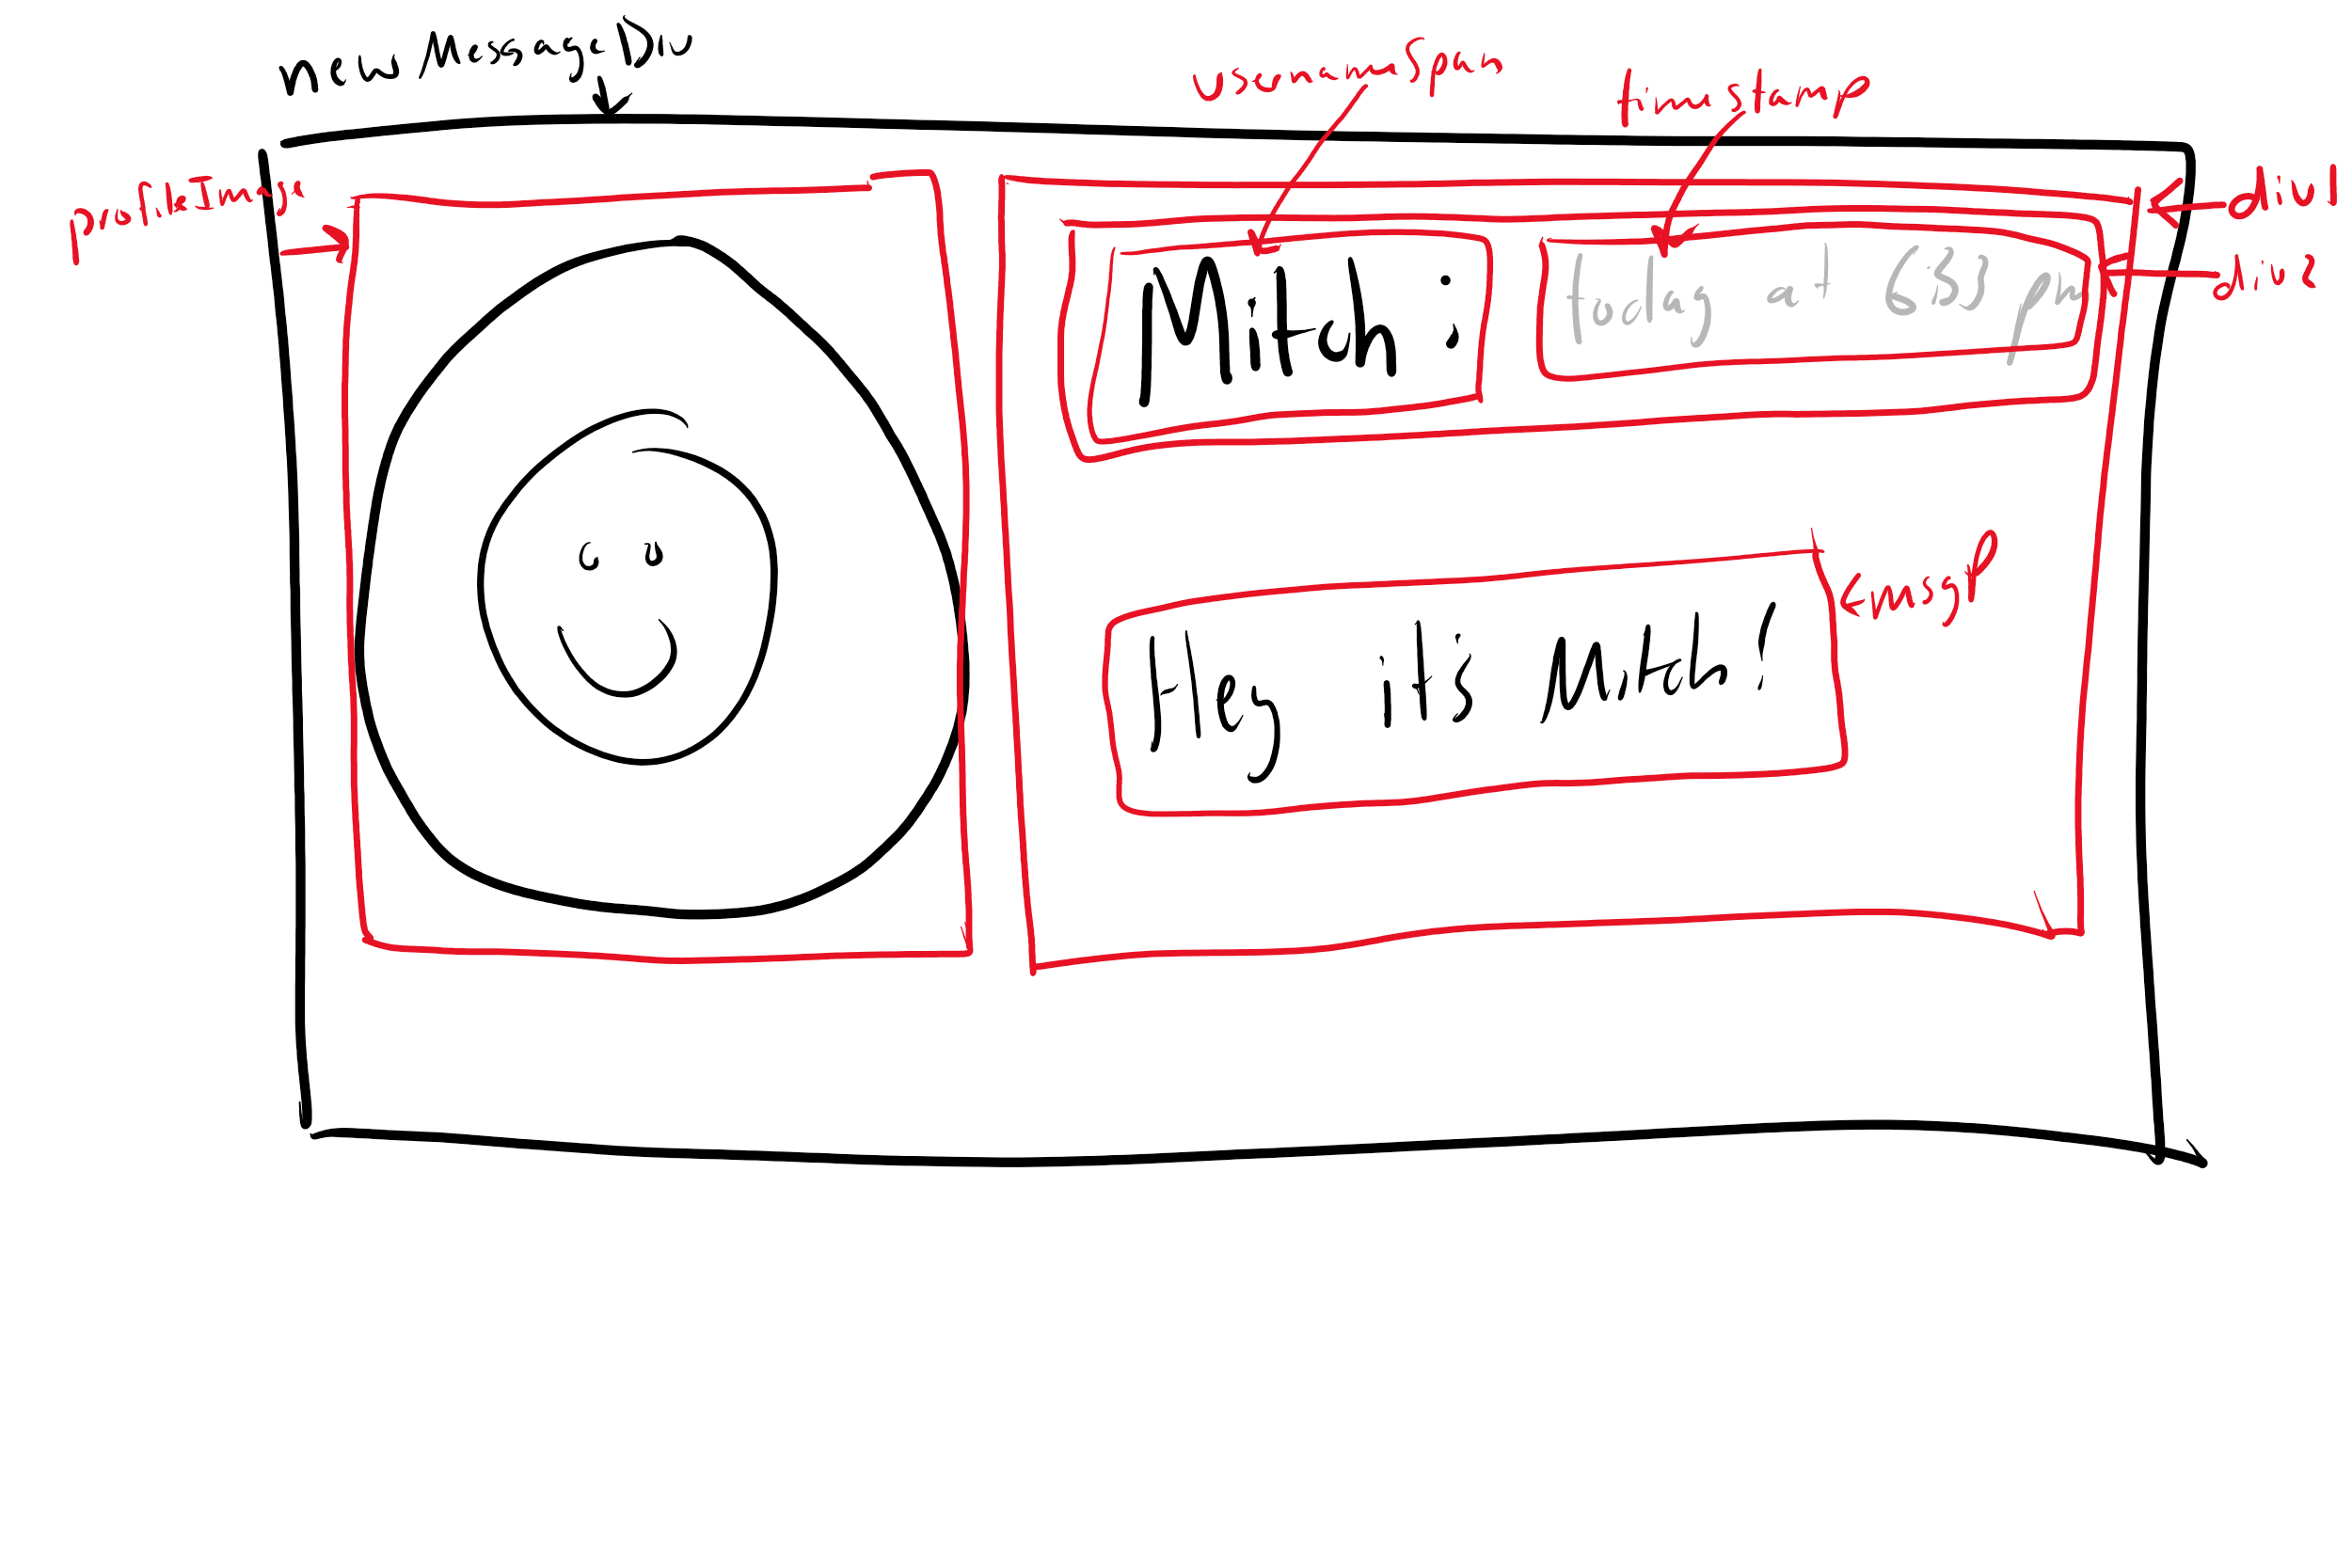 newMessageDiv
usernameSpan
timestamp
profileImage
div1
div2
Mitch :
today at 6:33 pm
<msgP
Hey it's Mitch!